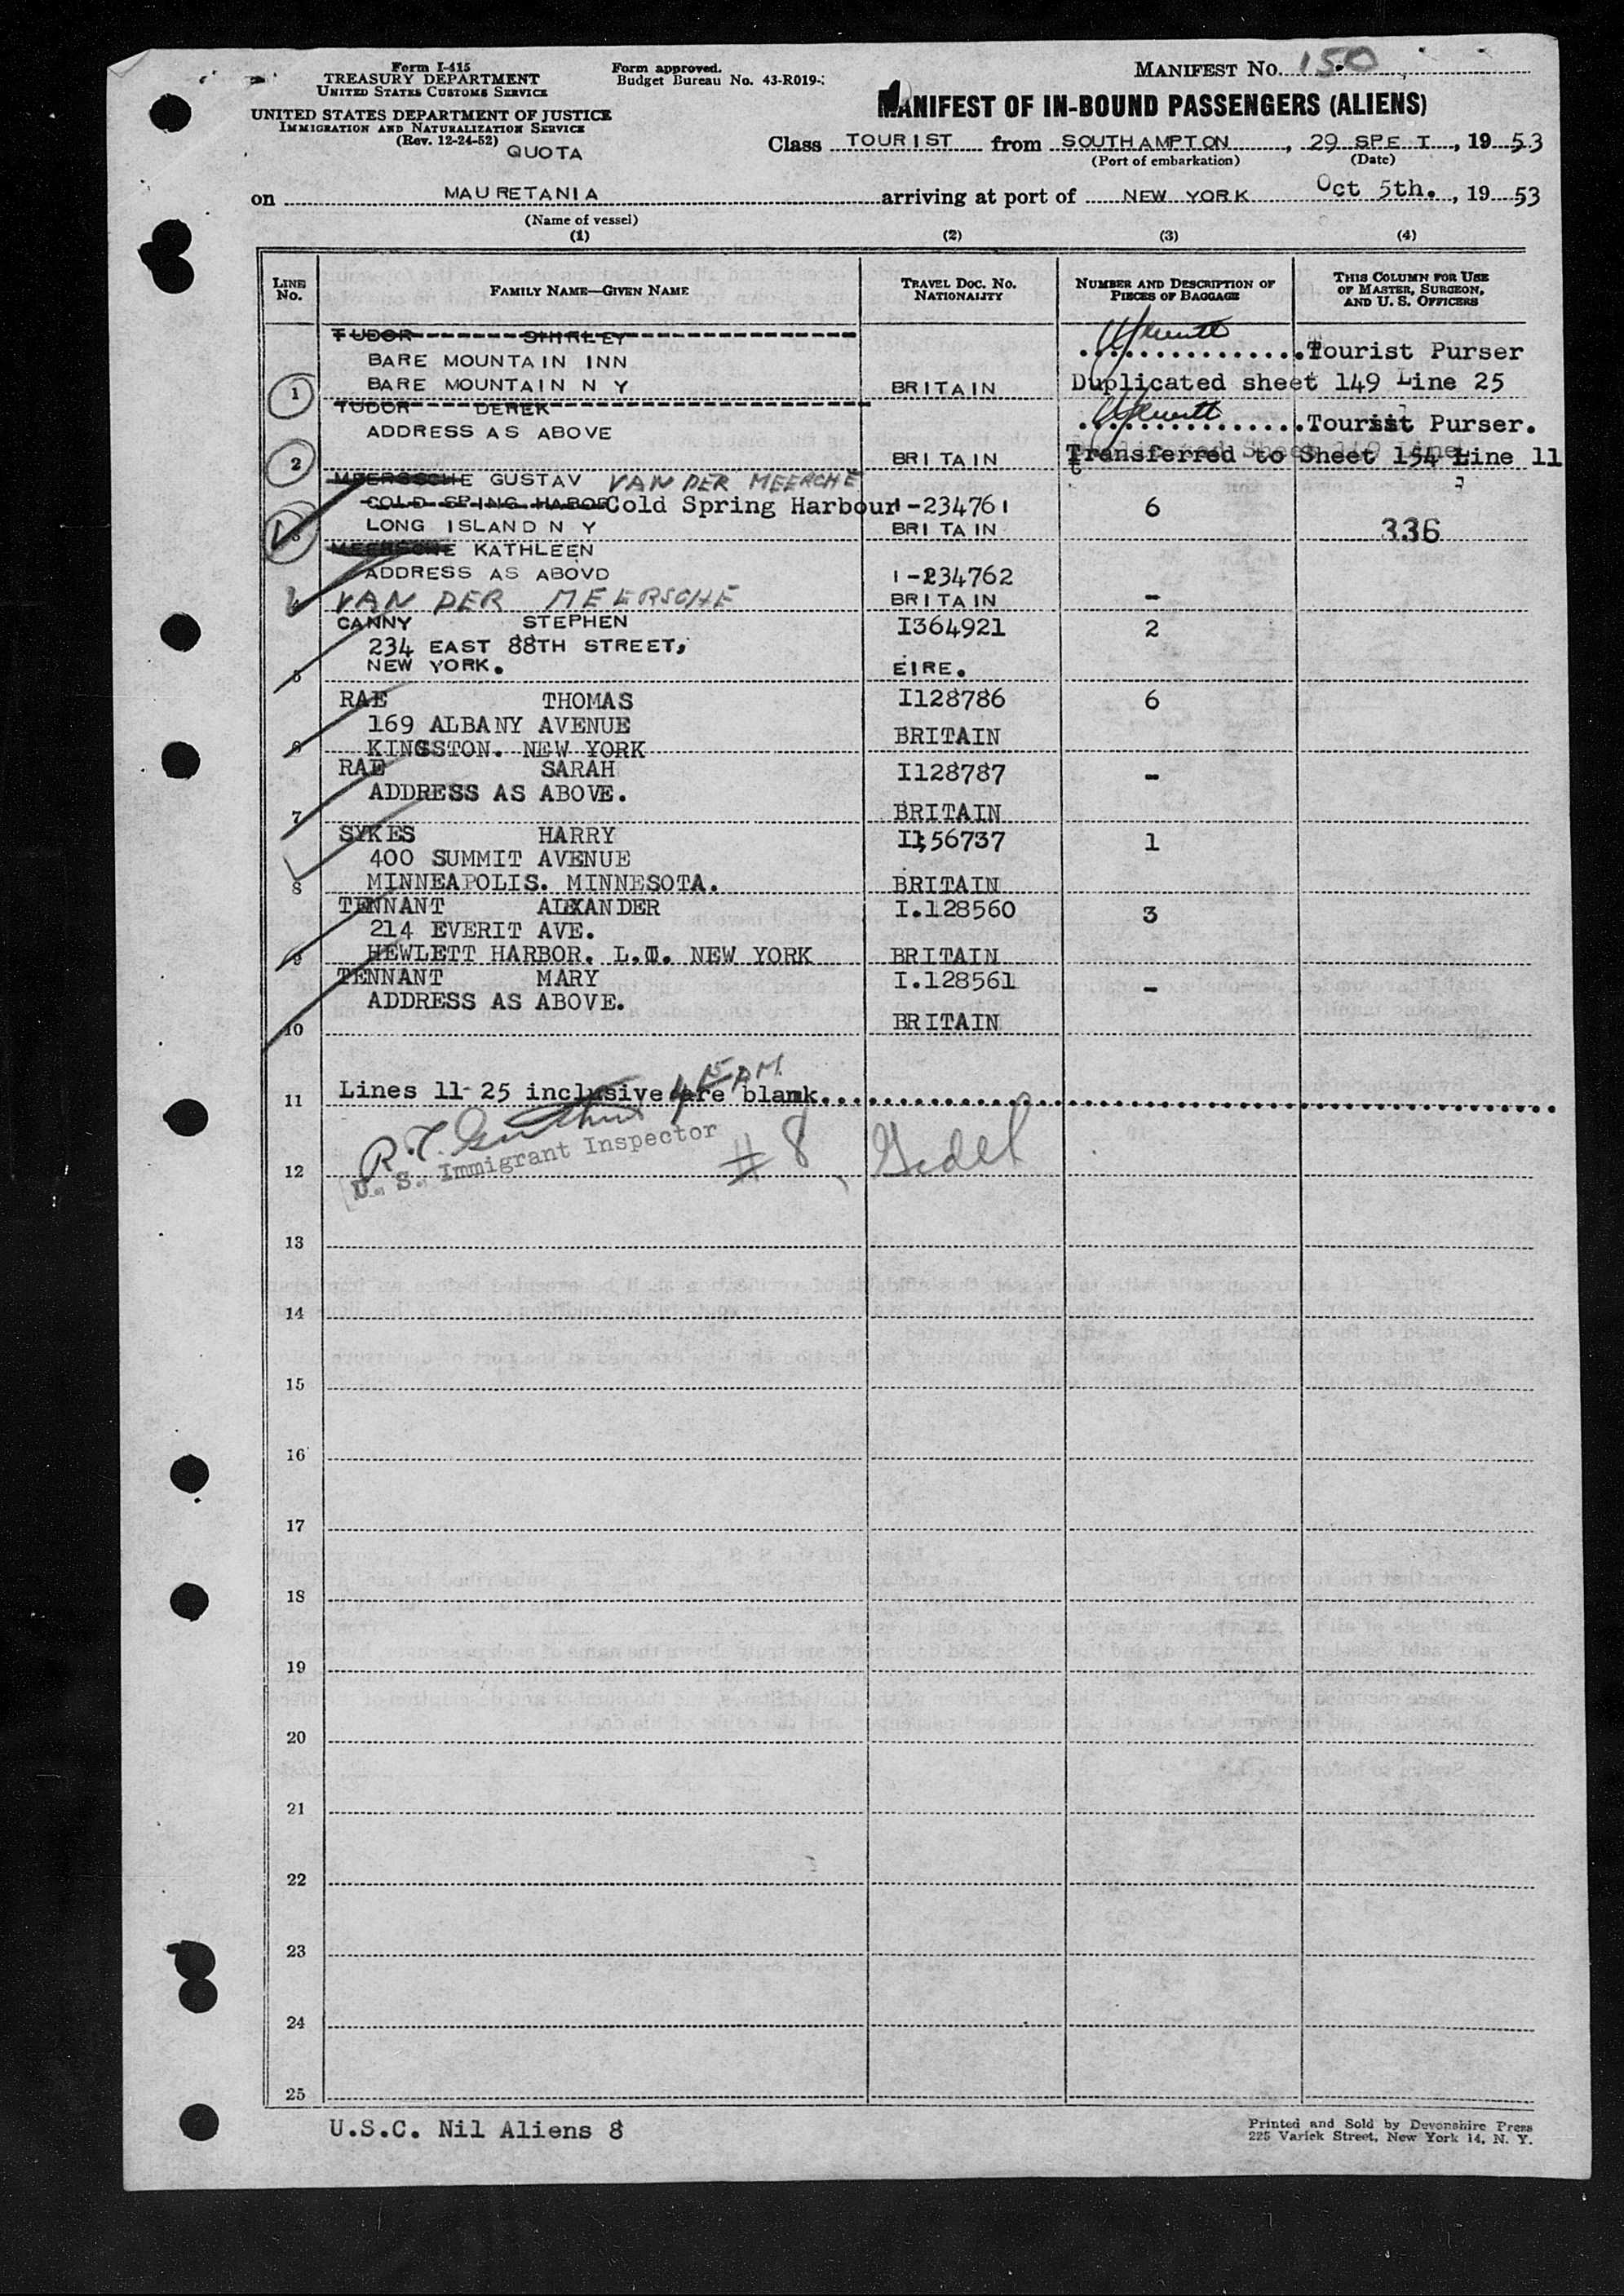 Form I-415
TREASURY DEPARTMENT
UNITED STATES CUSTOMS SERVICE
UNITED STATES DEPARTMENT OF JUSTICE
IMMIGRATION AND NATURALIZATION SERVICE
(Rev. 12-24-52)
QUOTA
Form approved.
Budget Bureau No. 43-R019-
MANIFEST NO. 150
MANIFEST OF IN-BOUND PASSENGERS (ALIENS)
Class TOURIST from SOUTHAMPTON, 29 SPE T, 1953
(Port of embarkation) (Date)
on MAURETANIA arriving at port of NEW YORK Oct 5th., 1953
(Name of vessel)
(1) (2) (3) (4)
LINE NO. FAMILY NAME—GIVEN NAME TRAVEL DOC. NO. NATIONALITY NUMBER AND DESCRIPTION OF PIECES OF BAGGAGE THIS COLUMN FOR USE OF MASTER, SURGEON, AND U. S. OFFICERS
TUDOR SHIRLEY
BARE MOUNTAIN INN Tourist Purser
1 BARE MOUNTAIN N Y BRITAIN Duplicated sheet 149 Line 25
TUDOR DEREK
ADDRESS AS ABOVE Tourist Purser.
2 BRITAIN Transferred to Sheet 154 Line 11
MEERSSCHE GUSTAV VAN DER MEERCHE
COLD SPRING HABOR Cold Spring Harbour 1-234761 6
3 LONG ISLAND N Y BRITAIN 336
MEERSCHE KATHLEEN
ADDRESS AS ABOVD 1-234762
4 VAN DER MEERSCHE BRITAIN -
CANNY STEPHEN I364921 2
234 EAST 88TH STREET,
5 NEW YORK. EIRE.
RAE THOMAS I128786 6
169 ALBANY AVENUE
6 KINGSTON. NEW YORK BRITAIN
RAE SARAH I128787 -
ADDRESS AS ABOVE.
7 BRITAIN
SYKES HARRY I156737 1
400 SUMMIT AVENUE
8 MINNEAPOLIS. MINNESOTA. BRITAIN
TENNANT ALEXANDER I.128560 3
214 EVERIT AVE.
9 HEWLETT HARBOR. L.I. NEW YORK BRITAIN
TENNANT MARY I.128561 -
ADDRESS AS ABOVE.
10 BRITAIN
11 Lines 11-25 inclusive are blank.
U. S. Immigrant Inspector
12 # 8
13
14
15
16
17
18
19
20
21
22
23
24
25
U.S.C. Nil Aliens 8
Printed and Sold by Devonshire Press
225 Varick Street, New York 14, N. Y.